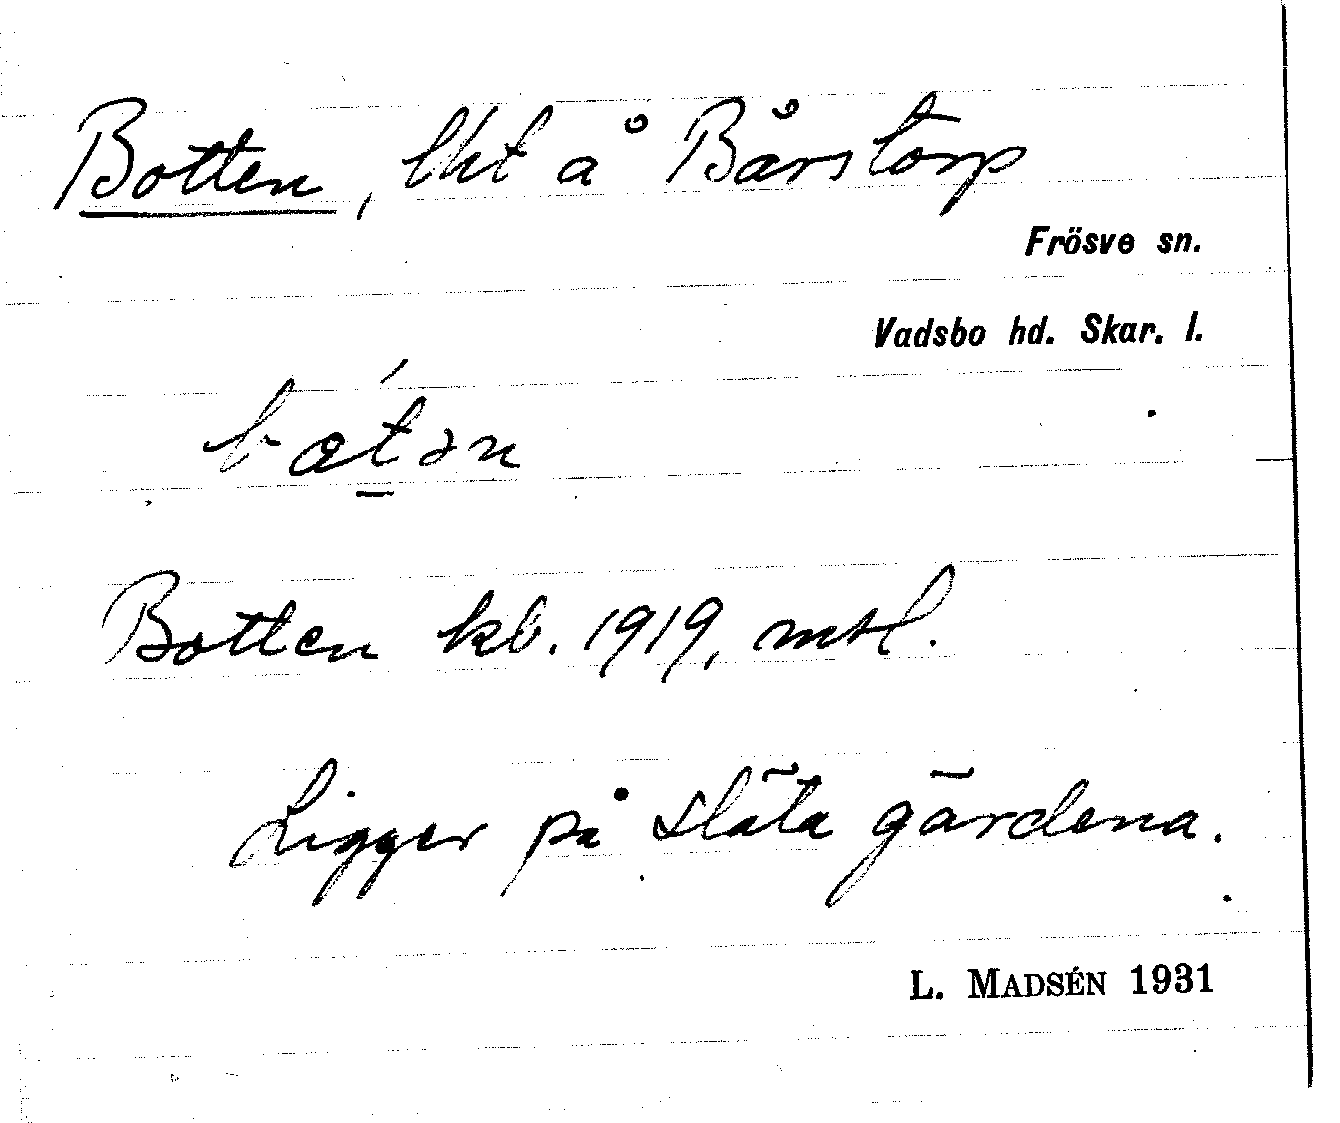 Botten, lht å Bårstorp
Frösve sn.
Vadsbo hd. Skar. l.
bót̲ən
Botten kb. 1919, mtl.
Ligger på släta gärdena.
L. MADSÉN 1931